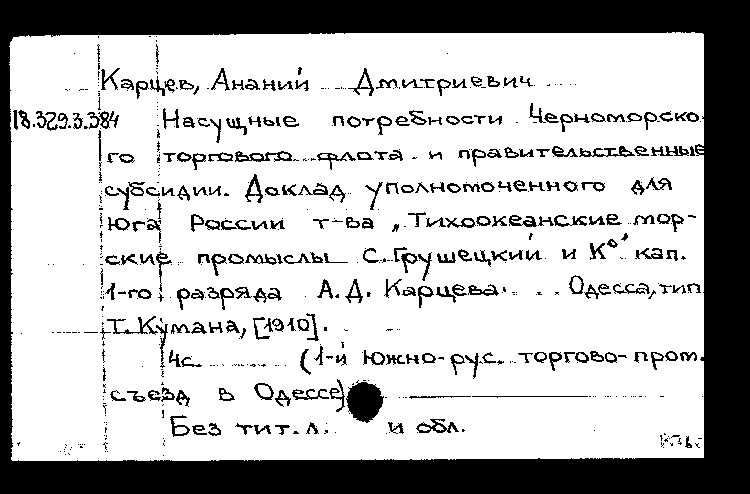 Карцев, Ананий Дмитриевич
18.329.3.384 Насущные потребности Черноморско-
го торгового флота и правительственные
субсидии. Доклад уполномоченного для
Юга России т-ва „Тихоокеанские мор-
ские промыслы С. Грушецкий и К°" кап.
1-го разряда А.Д. Карцева. Одесса, тип.
Т. Кумана, [1910].
4с. (1-й Южно-рус. торгово-пром.
съезд в Одессе)
Без тит. л. и обл.